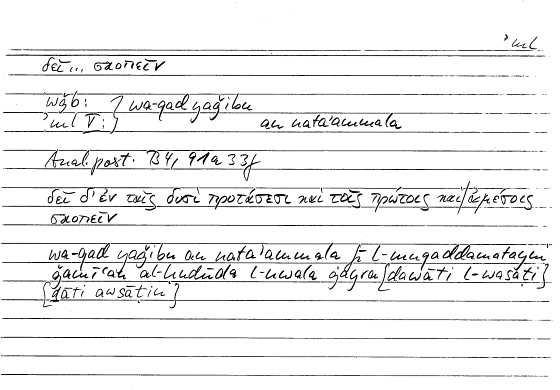 ʾml
δεῖ... σκοπεῖν
wǧb: } wa-qad yaǧibu
ʾml V: } an nataʾammala
Anal. post. B 4, 91 a 33f
δεῖ δ' ἐν ταῖς δυσὶ προτάσεσι καὶ ταῖς πρώταις καὶ ἀμέσοις
σκοπεῖν
wa-qad yaǧibu an nataʾammala fī l-muqaddamatayni
ǧamīʿan al-ḥudūda l-uwala ġayra {dawāti l-wasaṭi}
{ḏāti awsāṭin}